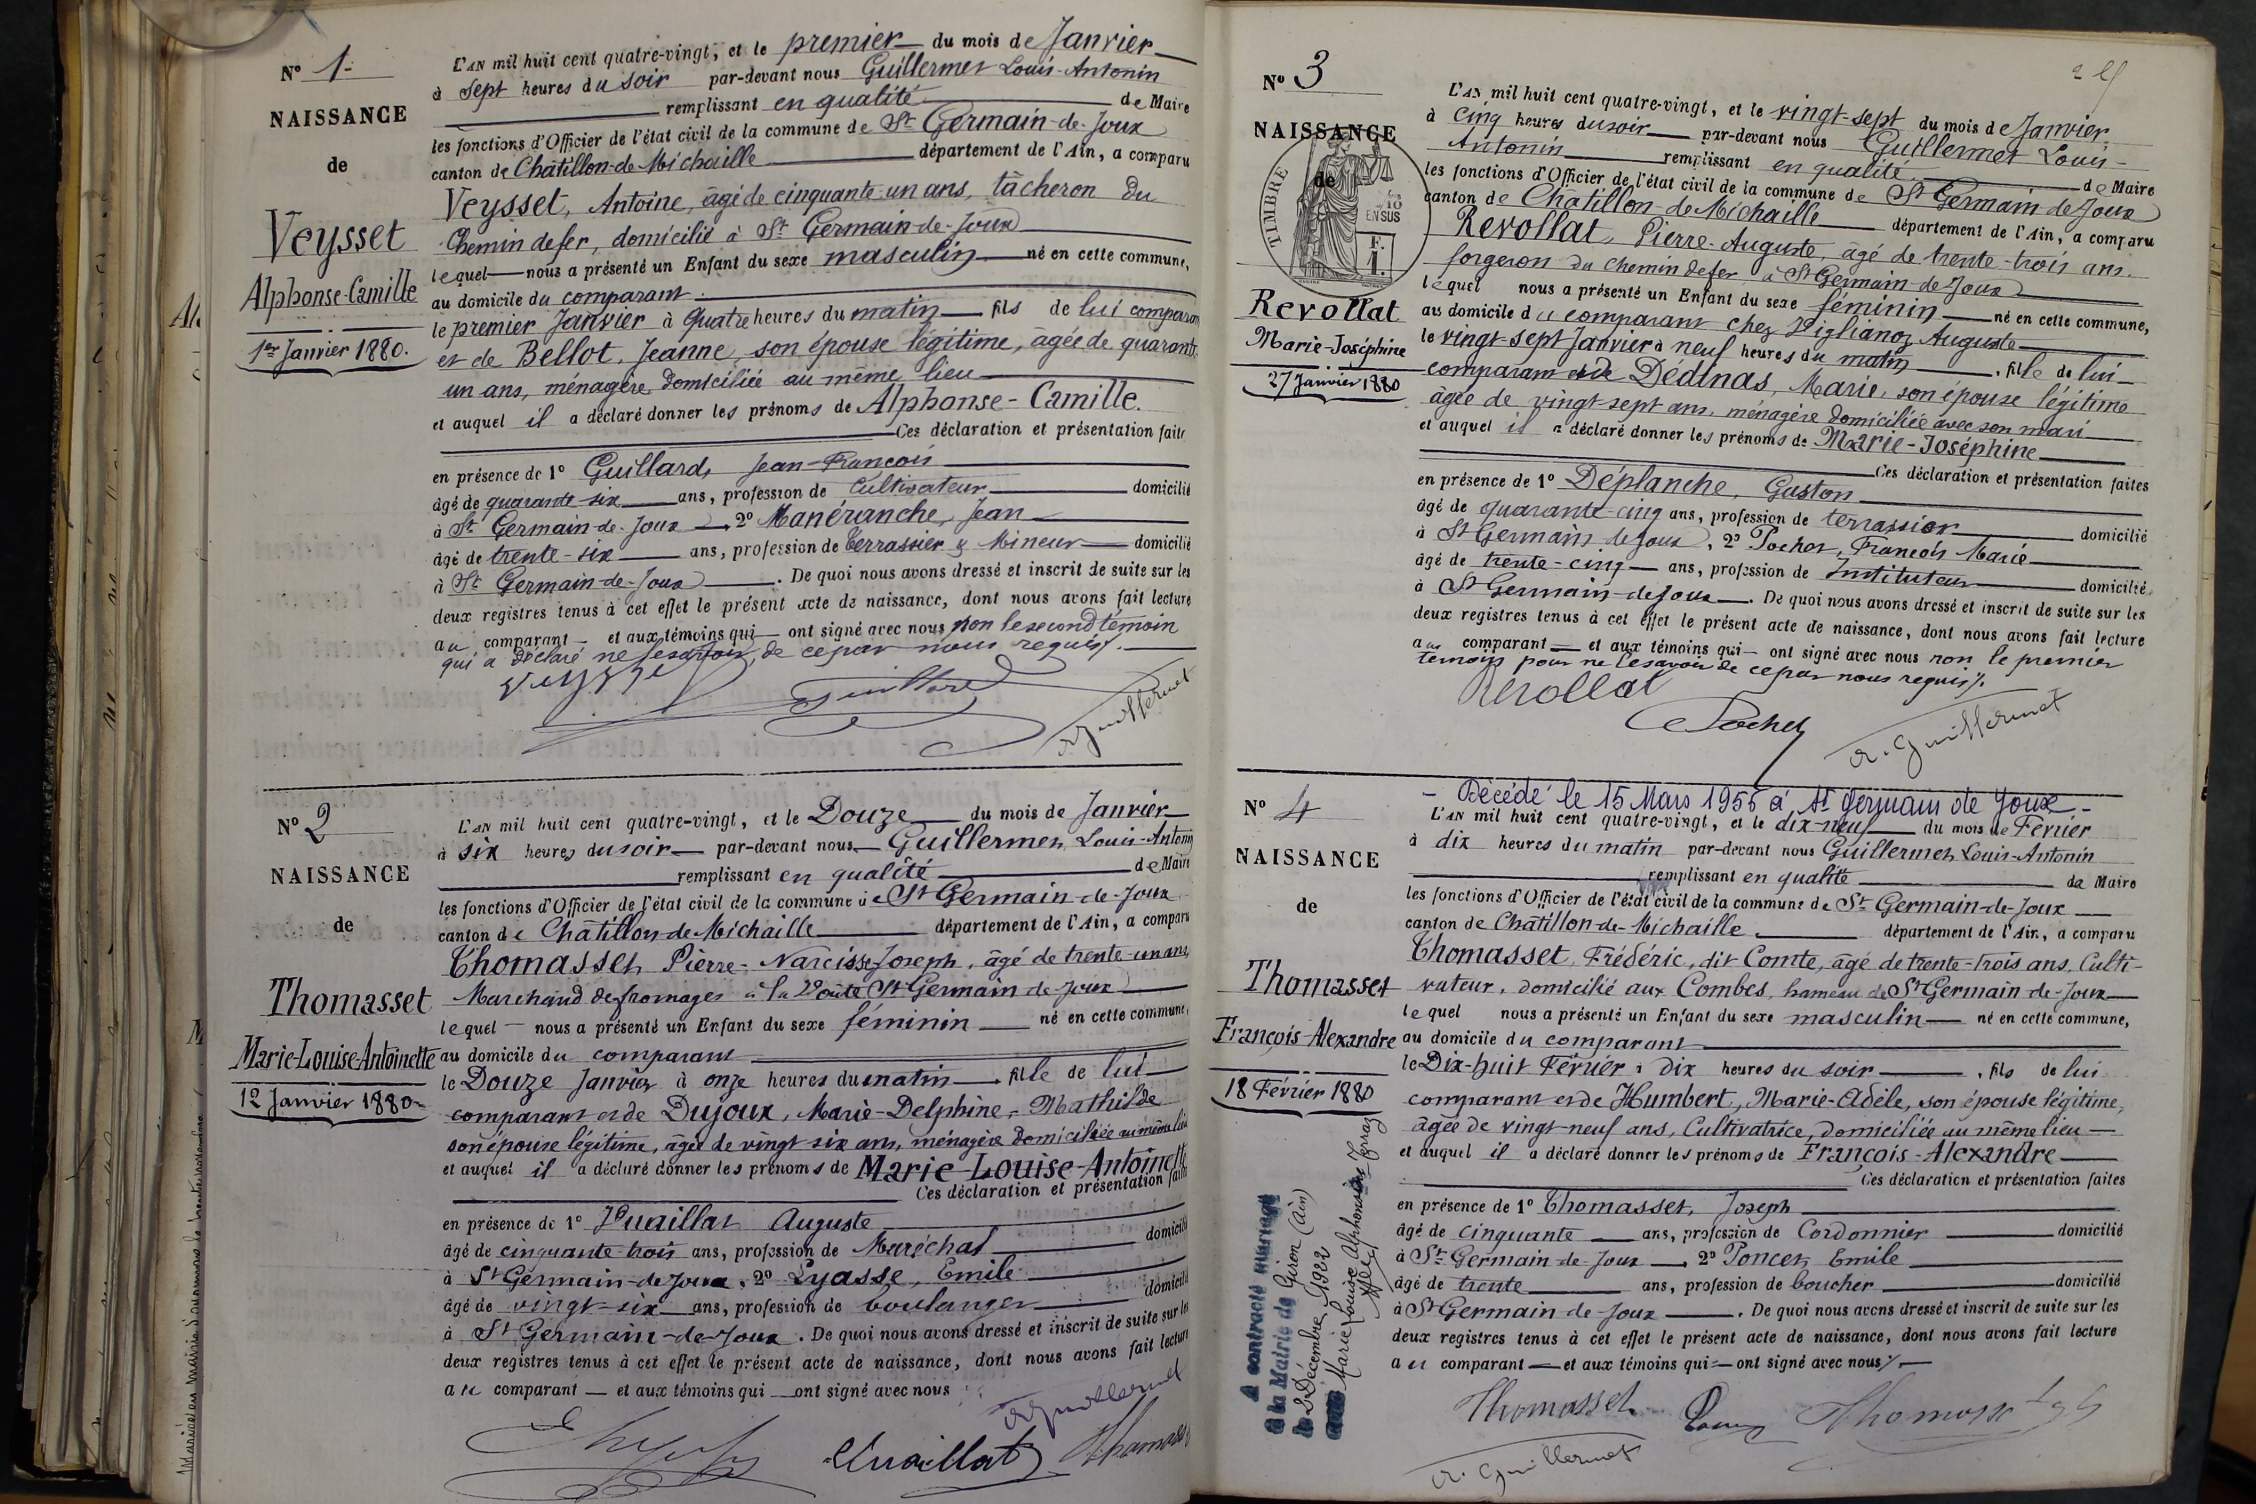 N° 1
NAISSANCE
de
Veysset
Alphonse-Camille
1er Janvier 1880.
L'AN mil huit cent quatre-vingt, et le premier du mois de Janvier
à Sept heures du soir par-devant nous Guillermet Louis-Antonin
remplissant en qualité de Maire
les fonctions d'Officier de l'état civil de la commune de St Germain-de-Joux
canton de Châtillon-de-Michaille département de l'Ain, a comparu
Veysset, Antoine, âgé de cinquante-un ans, tâcheron du
Chemin de fer, domicilié à St Germain-de-Joux
lequel nous a présenté un Enfant du sexe masculin né en cette commune,
au domicile du comparant
le premier Janvier à quatre heures du matin fils de lui comparant
et de Bellot, Jeanne, son épouse légitime, âgée de quarante
un ans, ménagère domiciliée au même lieu
et auquel il a déclaré donner les prénoms de Alphonse-Camille.
Ces déclaration et présentation faites
en présence de 1° Guillard, Jean-François
âgé de quarante-six ans, profession de Cultivateur domicilié
à St Germain-de-Joux, 2° Manéranche, Jean
âgé de trente-six ans, profession de Terrassier & Mineur domicilié
à St Germain-de-Joux. De quoi nous avons dressé et inscrit de suite sur les
deux registres tenus à cet effet le présent acte de naissance, dont nous avons fait lecture
au comparant et aux témoins qui ont signé avec nous non le second témoin
qui a déclaré ne le savoir, de ce par nous requis.
Veysset Guillard
A. Guillermet
N° 2
NAISSANCE
de
Thomasset
Marie-Louise-Antoinette
12 Janvier 1880
L'AN mil huit cent quatre-vingt, et le Douze du mois de Janvier
à six heures du soir par-devant nous Guillermet, Louis-Antonin
remplissant en qualité de Maire
les fonctions d'Officier de l'état civil de la commune de St Germain-de-Joux
canton de Châtillon-de-Michaille département de l'Ain, a comparu
Thomasset, Pierre-Narcisse-Joseph, âgé de trente-un ans,
Marchand de fromages à la Voûte St Germain-de-Joux
lequel nous a présenté un Enfant du sexe féminin né en cette commune,
au domicile du comparant
le Douze Janvier à onze heures du matin, fille de lui
comparant et de Dujoux, Marie-Delphine-Mathilde
son épouse légitime, âgée de vingt six ans, ménagère domiciliée au même lieu
et auquel il a déclaré donner les prénoms de Marie-Louise-Antoinette
Ces déclaration et présentation faites
en présence de 1° Vuaillat Auguste
âgé de cinquante-trois ans, profession de Maréchal domicilié
à St Germain-de-Joux, 2° Lyasse, Emile
âgé de vingt-six ans, profession de boulanger domicilié
à St Germain-de-Joux. De quoi nous avons dressé et inscrit de suite sur les
deux registres tenus à cet effet le présent acte de naissance, dont nous avons fait lecture
au comparant et aux témoins qui ont signé avec nous
A. Guillermet
Vuaillat Thomasset
N° 3
NAISSANCE
de
TIMBRE
10
EN SUS
F.
1.
Revollat
Marie-Joséphine
27 Janvier 1880
L'AN mil huit cent quatre-vingt, et le vingt-sept du mois de Janvier,
à cinq heures du soir par-devant nous Guillermet Louis-
Antonin remplissant en qualité de Maire
les fonctions d'Officier de l'état civil de la commune de St Germain de Joux
canton de Châtillon-de-Michaille département de l'Ain, a comparu
Revollat, Pierre-Auguste, âgé de trente-trois ans.
forgeron du chemin de fer, à St Germain-de-Joux
lequel nous a présenté un Enfant du sexe féminin né en cette commune,
au domicile du comparant chez Viglianoz Auguste
le vingt-sept Janvier à neuf heures du matin, fille de lui
comparant et de Dédinas, Marie, son épouse légitime
âgée de vingt-sept ans, ménagère domiciliée avec son mari
et auquel il a déclaré donner les prénoms de Marie-Joséphine
Ces déclaration et présentation faites
en présence de 1° Déplanche, Gaston
âgé de quarante-cinq ans, profession de terrassier domicilié
à St Germain de Joux, 2° Pochet, François Marie
âgé de trente-cinq ans, profession de Instituteur domicilié
à St Germain-de-Joux. De quoi nous avons dressé et inscrit de suite sur les
deux registres tenus à cet effet le présent acte de naissance, dont nous avons fait lecture
au comparant et aux témoins qui ont signé avec nous non le premier
témoin pour ne le savoir de ce par nous requis.
Révollat
Pochet
A. Guillermet
N° 4
NAISSANCE
de
Thomasset
François-Alexandre
18 Février 1880
A contracté mariage
à la Mairie de Giron (Ain)
le 2 Décembre 1922
avec Marie Louise Alphonsine
- Décédé le 15 Mars 1956 à St Germain de Joux -
L'AN mil huit cent quatre-vingt, et le dix-neuf du mois de Février
à dix heures du matin par-devant nous Guillermet, Louis-Antonin
remplissant en qualité de Maire
les fonctions d'Officier de l'état civil de la commune de St Germain-de-Joux
canton de Châtillon-de-Michaille département de l'Ain, a comparu
Thomasset, Frédéric, dit Comte, âgé de trente-trois ans, Culti-
vateur, domicilié aux Combes, hameau de St Germain-de-Joux
lequel nous a présenté un Enfant du sexe masculin né en cette commune,
au domicile du comparant
le Dix-huit Février à dix heures du soir, fils de lui
comparant et de Humbert, Marie-Adèle, son épouse légitime,
âgée de vingt-neuf ans, Cultivatrice, domiciliée au même lieu
et auquel il a déclaré donner les prénoms de François-Alexandre
Ces déclaration et présentation faites
en présence de 1° Thomasset, Joseph
âgé de cinquante ans, profession de Cordonnier domicilié
à St Germain-de-Joux, 2° Poncet, Emile
âgé de trente ans, profession de boucher domicilié
à St Germain de Joux. De quoi nous avons dressé et inscrit de suite sur les
deux registres tenus à cet effet le présent acte de naissance, dont nous avons fait lecture
au comparant et aux témoins qui ont signé avec nous
Thomasset Thomasset
A. Guillermet